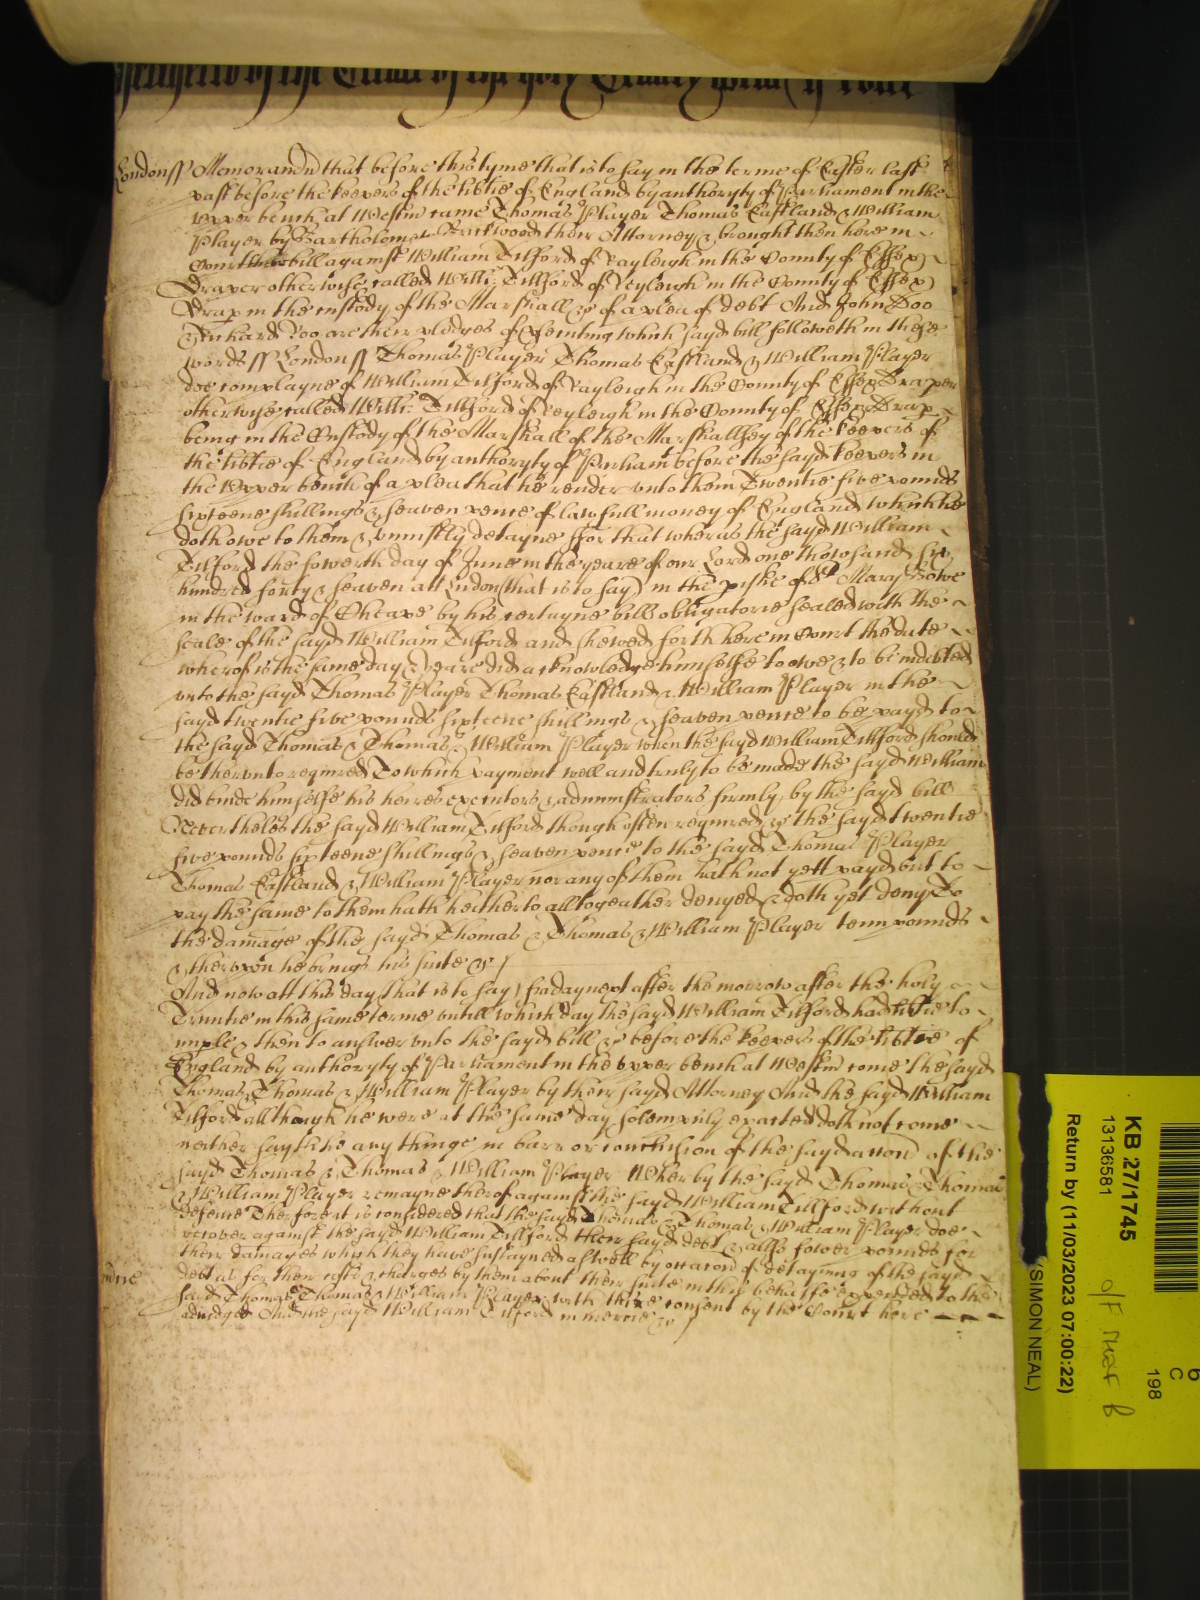 of the Terme of the holy Trinity
London ss Memorand that before this tyme that is to say in the terme of Easter last
past before the keepers of the libtie of England by authoryty of Parliament in the
upper bench at Westm came Thomas Player Thomas Eastland & William
Player by Bartholomew their Attorney & brought then here in
Court their bill against William Tilford of Rayleigh in the County of Essex
Draper otherwise called Willi: Tillford of Reyleigh in the County of Essex
Drap in the custody of the Marshall &c of a plea of debt And John Doo
& Richard Roo are their pledges of psenting which sayd bill followeth in these
words ss London ss Thomas Player Thomas Eastland & William Player
doe complayne of William Tilford of Rayleigh in the County of Essex Draper
otherwise called Willi: Tillford of Reyleigh in the County of Essex Drap
being in the Custody of the Marshall of the Marshallsey of the keepers of
the libtie of England by authoryty of Parliam before the sayd keepers in
the Upper bench of a plea that he render unto them Twentie five pounds
sixteene shillings & seaven pence of lawfull money of England which he
doth owe to them & uniustly detayne ffor that wheras the sayd William
Tilford the fowerth day of June in the yeare of our Lord one thowsand six
hundred forty & seaven att London (that is to say) in the pishe of St Mary Bowe
in the ward of Cheape by his certayne bill obligatorie sealed with the
seale of the sayd William Tilford and shewed forth here in Court the date
wherof is the same day & yeare did acknowledge himselfe to owe & to be indebted
unto the sayd Thomas Player Thomas Eastland & William Player in the
sayd twentie five pounds sixteene shillings & seaven pence to be payd to
the sayd Thomas & Thomas & William Player when the sayd William Tilford should
be therunto required To which payment well and truly to be made the sayd William
did binde himselfe his heires executors & administrators firmly by the sayd bill
Neverthelès the sayd William Tilford though often required &c the sayd twentie
five pounds sixteene shillings & seaven pence to the sayd Thomas Player
Thomas Eastland & William Player nor any of them hath not yett payd but to
pay the same to them hath heitherto alltogeather denyed & doth yet deny To
the damage of the sayd Thomas & Thomas & William Player tenn pounds
& therupon he brings his suite &c
And now att this day (that is to say) friday next after the morrow after the holy
Trinitie in this same terme untill which day the sayd William Tilford had libtie to
imple & then to answer unto the sayd bill &c before the keepers of the libtie of
England by authoryty of Parliament in the upper bench at Westm come the sayd
Thomas & Thomas & William Player by their sayd Attorney And the sayd William
Tilford allthough he were at the same day solemnly exacted doth not come
neither sayth he any thinge in barr or conclusion of the sayd accon of the
sayd Thomas & Thomas & William Player Wherby the sayd Thomas & Thomas
& William Player remayne therof against the sayd William Tillford without
defence Therefore it is considered that the sayd Thomas & Thomas & William Player doe
recover against the sayd William Tillford their sayd debt & allso fower pounds for
their damages which they have sustayned aswell by occacion of detayning of the sayd
debt as for their costs & charges by them about their suite in this behalfe expended to the
sayd Thomas Thomas & William Player with their consent by the Court here
adiudged And the sayd William Tilford in mercie &c
KB 27/1745
13136581
Return by (11/03/2023 07:00:22)
(SIMON NEAL)
6
C
198